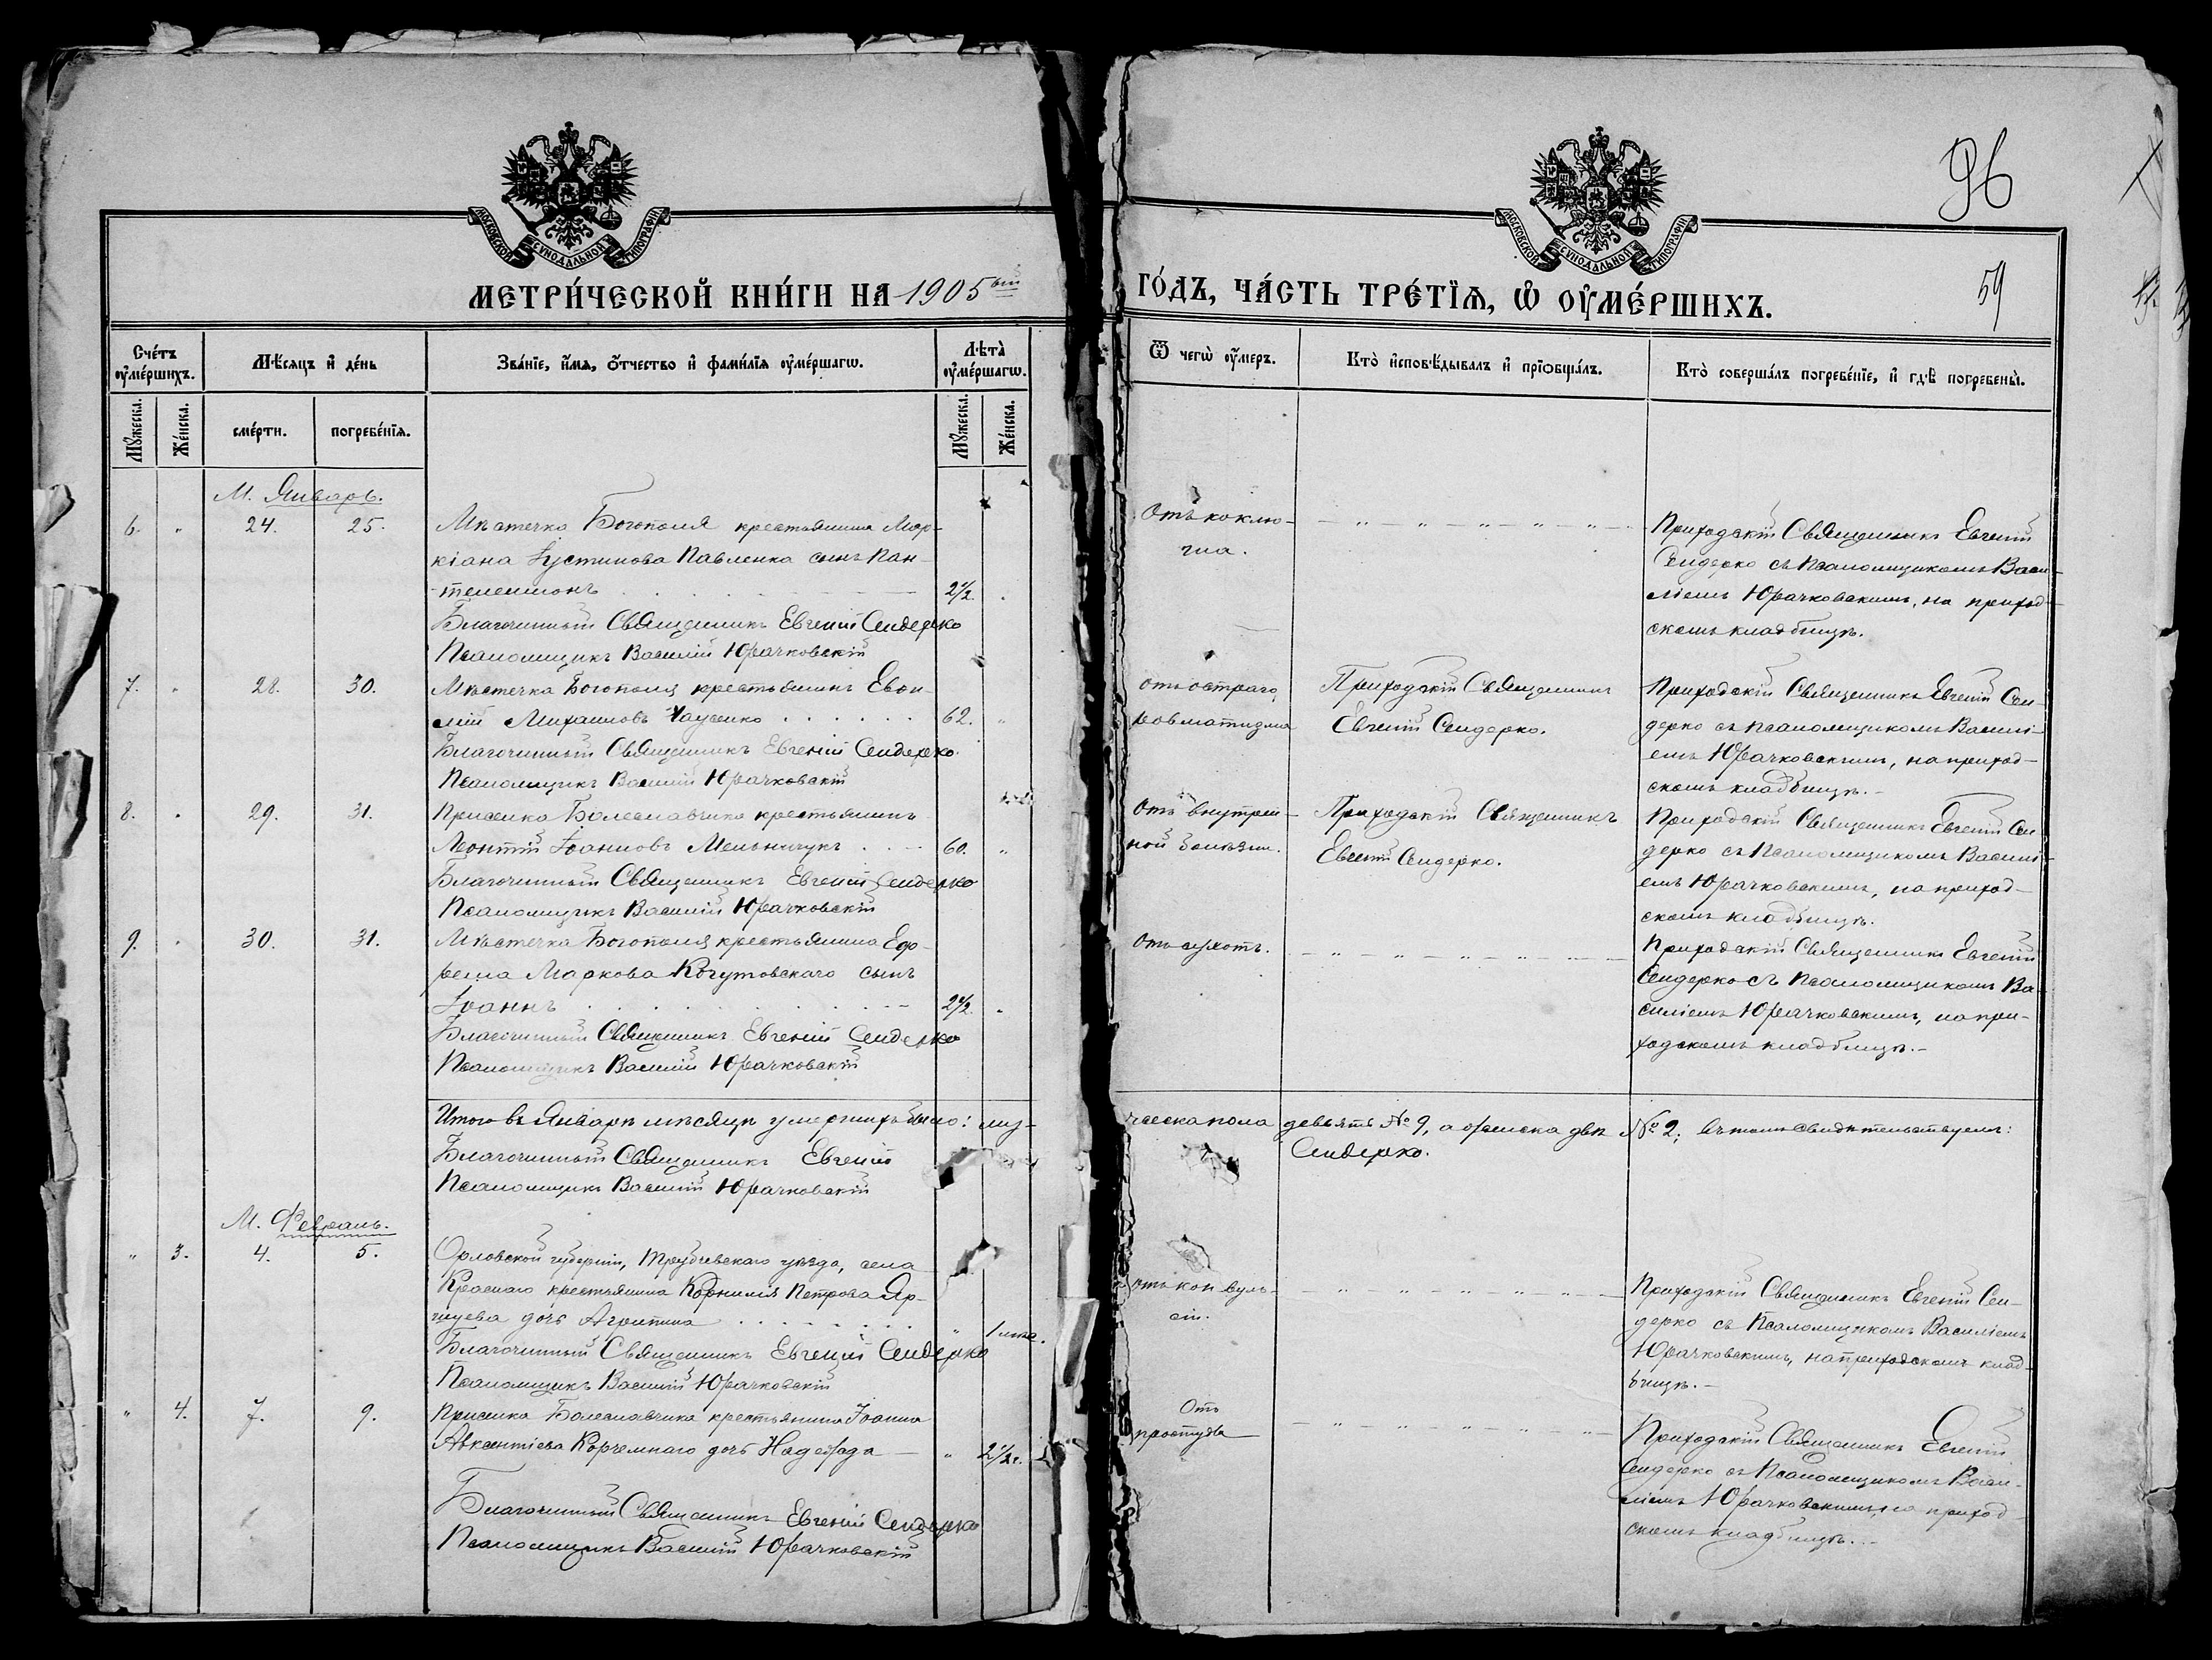 96
МОСКОВСКОЙ СѴНОДАЛЬНОЙ ТИПОГРАФІИ
МОСКОВСКОЙ СѴНОДАЛЬНОЙ ТИПОГРАФІИ
МЕТРИ́ЧЕСКОЙ КНИ́ГИ НА 1905ый
ГО́ДЪ, ЧА́СТЬ ТРЕ́ТІѦ, Ѡ҆ ОУ҆МЕ́РШИХЪ.
59
Сче́тъ оу҆ме́ршихъ.
Мѣ́сяцъ и҆ де́нь
Зва́ніе, и҆́мѧ, ѻ҆́тчество и҆ фами́лїѧ оу҆ме́ршагѡ.
Лѣта̀ оу҆ме́ршагѡ.
Ѿ чегѡ̀ оу҆́меръ.
Кто̀ и҆сповѣ́дывалъ и҆ прїѡбща́лъ.
Кто̀ соверша́лъ погребе́нїе, и҆ гдѣ̀ погребены̀.
Мꙋ́жеска.
Же́нска.
сме́рти.
погребе́нїѧ.
Мꙋ́жеска.
Же́нска.
М. Январь.
6. " 24. 25. Мѣстечка Богополя крестьянина Мар-
кіана Іустинова Павленка сынъ Пан-
телеимонъ 2½.
Благочинный Священникъ Евгеній Сендерко
Псаломщикъ Василій Юрачковскій
Отъ коклю-
ша.
Приходскій Священникъ Евгеній
Сендерко съ Псаломщикомъ Васи-
ліемъ Юрачковскимъ, на приход-
скомъ кладбищѣ.
7. " 28. 30. Мѣстечка Богополя крестьянинъ Евѳи-
мій Михаиловъ 62. "
Благочинный Священникъ Евгеній Сендерко.
Псаломщикъ Василій Юрачковскій
отъ остраго
ревматизма
Приходскій Священникъ
Евгеній Сендерко.
Приходскій Священникъ Евгеній Сен-
дерко съ псаломщикомъ Василі-
емъ Юрачковскимъ, на приход-
скомъ кладбищѣ.-
8. " 29. 31. Приселка Болеславчика крестьянинъ
Леонтій Іоанновъ Мельничукъ 60. "
Благочинный Священникъ Евгеній Сендерко
Псаломщикъ Василій Юрачковскій
Отъ внутрен-
ной болѣзни.
Приходскій Священникъ
Евгеній Сендерко.
Приходскій Священникъ Евгеній Сен-
дерко съ Псаломщикомъ Василі-
емъ Юрачковскимъ, на приход-
скомъ кладбищѣ.
9. " 30. 31. Мѣстечка Богополя крестьянина Еф-
рема Маркова Когутовскаго сынъ
Іоаннъ 2½. "
Благочинный Священникъ Евгеній Сендерко
Псаломщикъ Василій Юрачковскій
Отъ сухотъ.
Приходскій Священникъ Евгеній
Сендерко съ Псаломщикомъ Ва-
силіемъ Юрачковскимъ, на при-
ходскомъ кладбищѣ.-
Итого въ Январѣ мѣсяцѣ умершихъ было: муж-
ческа пола девять № 9, а женска двѣ № 2; въ томъ свидѣтельствуемъ:
Благочинный Священникъ Евгеній
Сендерко.
Псаломщикъ Василій Юрачковскій
М. Февраль.
" 3. 4. 5. Орловской губерніи, Трубчевскаго уѣзда, села
Краснаго крестьянина Корнилія Петрова Яр-
цева дочь Агрипина " 1
Благочинный Священникъ Евгеній Сендерко
Псаломщикъ Василій Юрачковскій
отъ конвуль-
сій.
Приходскій Священникъ Евгеній Сен-
дерко съ Псаломщикомъ Василіемъ
Юрачковскимъ, на приходскомъ клад-
бищѣ.-
" 4. 7. 9. Приселка Болеславчика крестьянина Іоанна
Авксентіева Корчемнаго дочь Надежда " 2½ г.
Благочинный Священникъ Евгеній Сендерко
Псаломщикъ Василій Юрачковскій
Отъ
простуды
Приходскій Священникъ Евгеній
Сендерко съ Псаломщикомъ Васи-
ліемъ Юрачковскимъ, на приход-
скомъ кладбищѣ.-